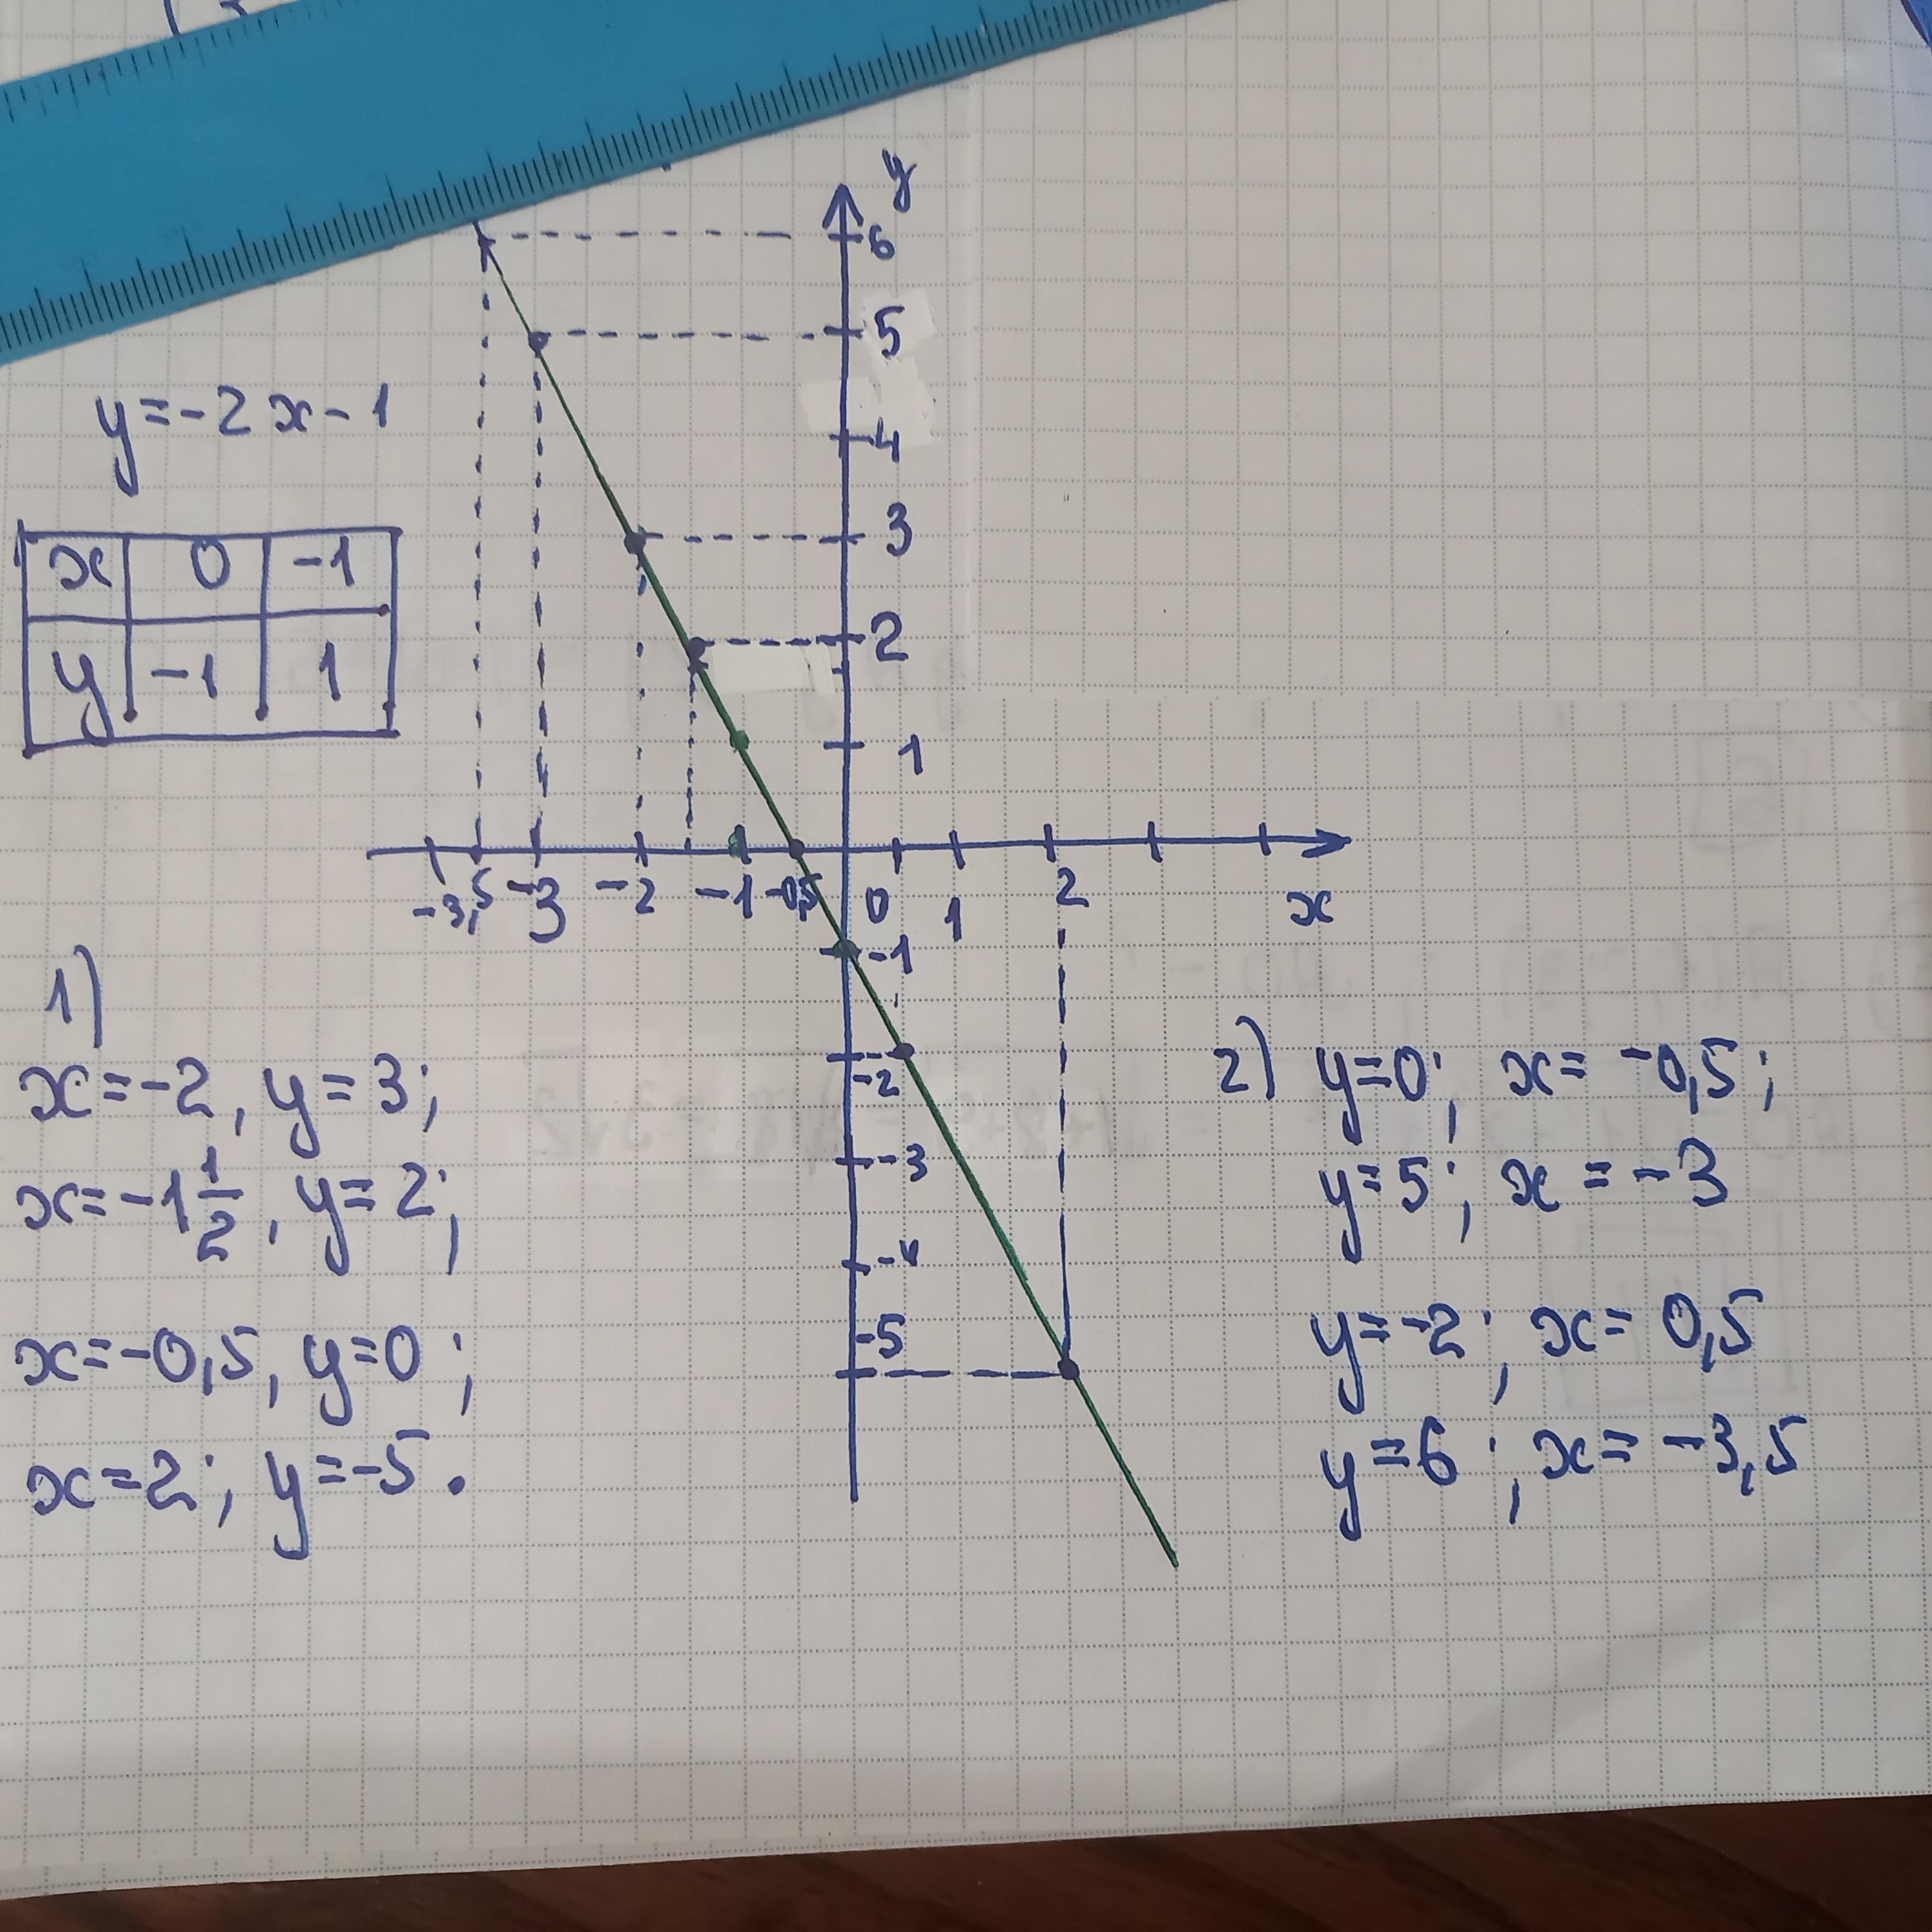 y
6
5
y=-2x-1
4
3
x 0 -1
2
y -1 1
1
-3,5 -3 -2 -1 -0,5 0 1 2 x
-1
1)
-2
x=-2, y=3;
-3
x=-1 1/2, y=2;
-4
-5
x=-0,5, y=0;
x=2; y=-5.
2) y=0; x=-0,5;
y=5; x=-3
y=-2; x=0,5
y=6; x=-3,5